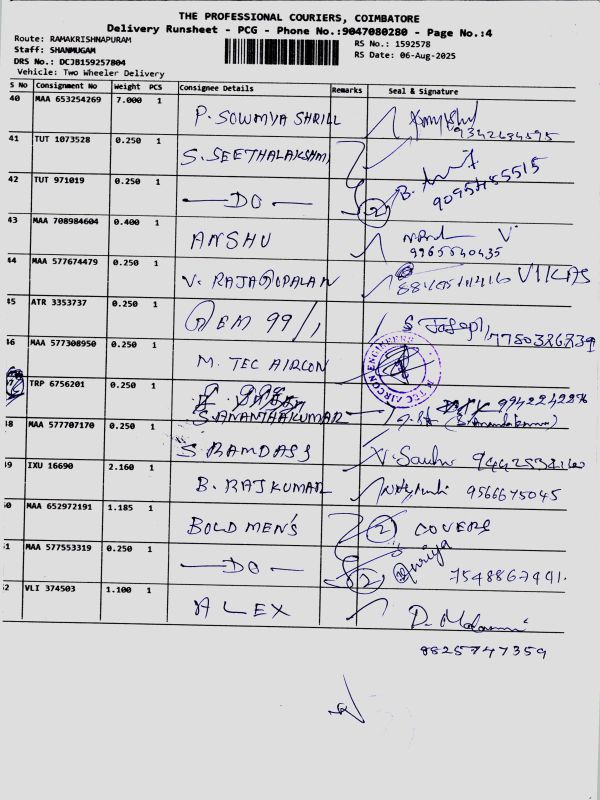 THE PROFESSIONAL COURIERS, COIMBATORE
Delivery Runsheet - PCG - Phone No.:9047080280 - Page No.:4
Route: RAMAKRISHNAPURAM
RS No.: 1592578
Staff: SHANMUGAM
RS Date: 06-Aug-2025
DRS No.: DCJB159257804
Vehicle: Two Wheeler Delivery
S No Consignment No Weight PCS Consignee Details Remarks Seal & Signature
40 MAA 653254269 7.000 1 P. SOWMYA SHRILL
9342634595
41 TUT 1073528 0.250 1 S. SEETHALAKSHMI
B.
42 TUT 971019 0.250 1 —DO— 2
43 MAA 708984604 0.400 1 ANSHU
9965640435
44 MAA 577674479 0.250 1 V. RAJAGOPALAN VIKAS
45 ATR 3353737 0.250 1 GEM 99/1 S Joseph 7750326239
46 MAA 577308950 0.250 1 M. TEC AIRCON
M TEC AIRCON ENGINEERS
TRP 6756201 0.250 1 S. ANANTHAKUMAR 9942242296
48 MAA 577707170 0.250 1 S RAMDASS
49 IXU 16690 2.160 1 B. RAJKUMAR 9566675045
50 MAA 652972191 1.185 1 BOLD MEN'S 2 COVERS
51 MAA 577553319 0.250 1 —DO— 2 7548867491.
52 VLI 374503 1.100 1 ALEX D.
8825747359